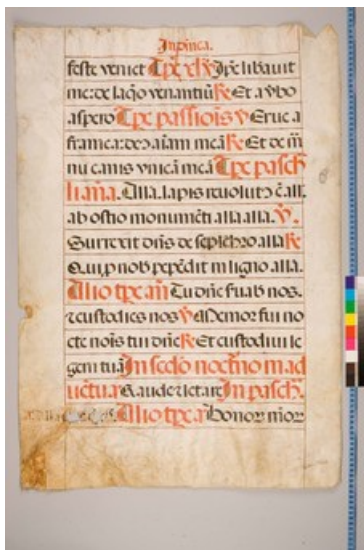 In pͥmca.
feste veniet Tp̄e xl͛ v Ip̄e libavit
me: de laq̄o venantiū R̃ Et a v̓bo
aspero Tp̄e passiōis v̓ Erue a
framea: de⁹ aīam meā R̃ Et de m̄
nu canis vnicā meā Tp̄e pasch
liam̄a. Alla. lapis reuolut⁹ ē all.
ab ostio monumēti alla alla. v̓.
Surrexit dn̄s de sepl̄chro alla R̃
Qui p nob̄ pepēdit in ligno alla.
Alio tp̄e am̄ Tu dn̄e s̓uab̓ nos.
⁊ custodies nos v̓ Memor fui no
cte nōis tui dn̄e R̃ Et custodiui le
gem tuā In scd̄o noct̄no in ad
uētu a Gaude ⁊ letare In pasch̄.
Alio tp̄e a Honor⁊ mor